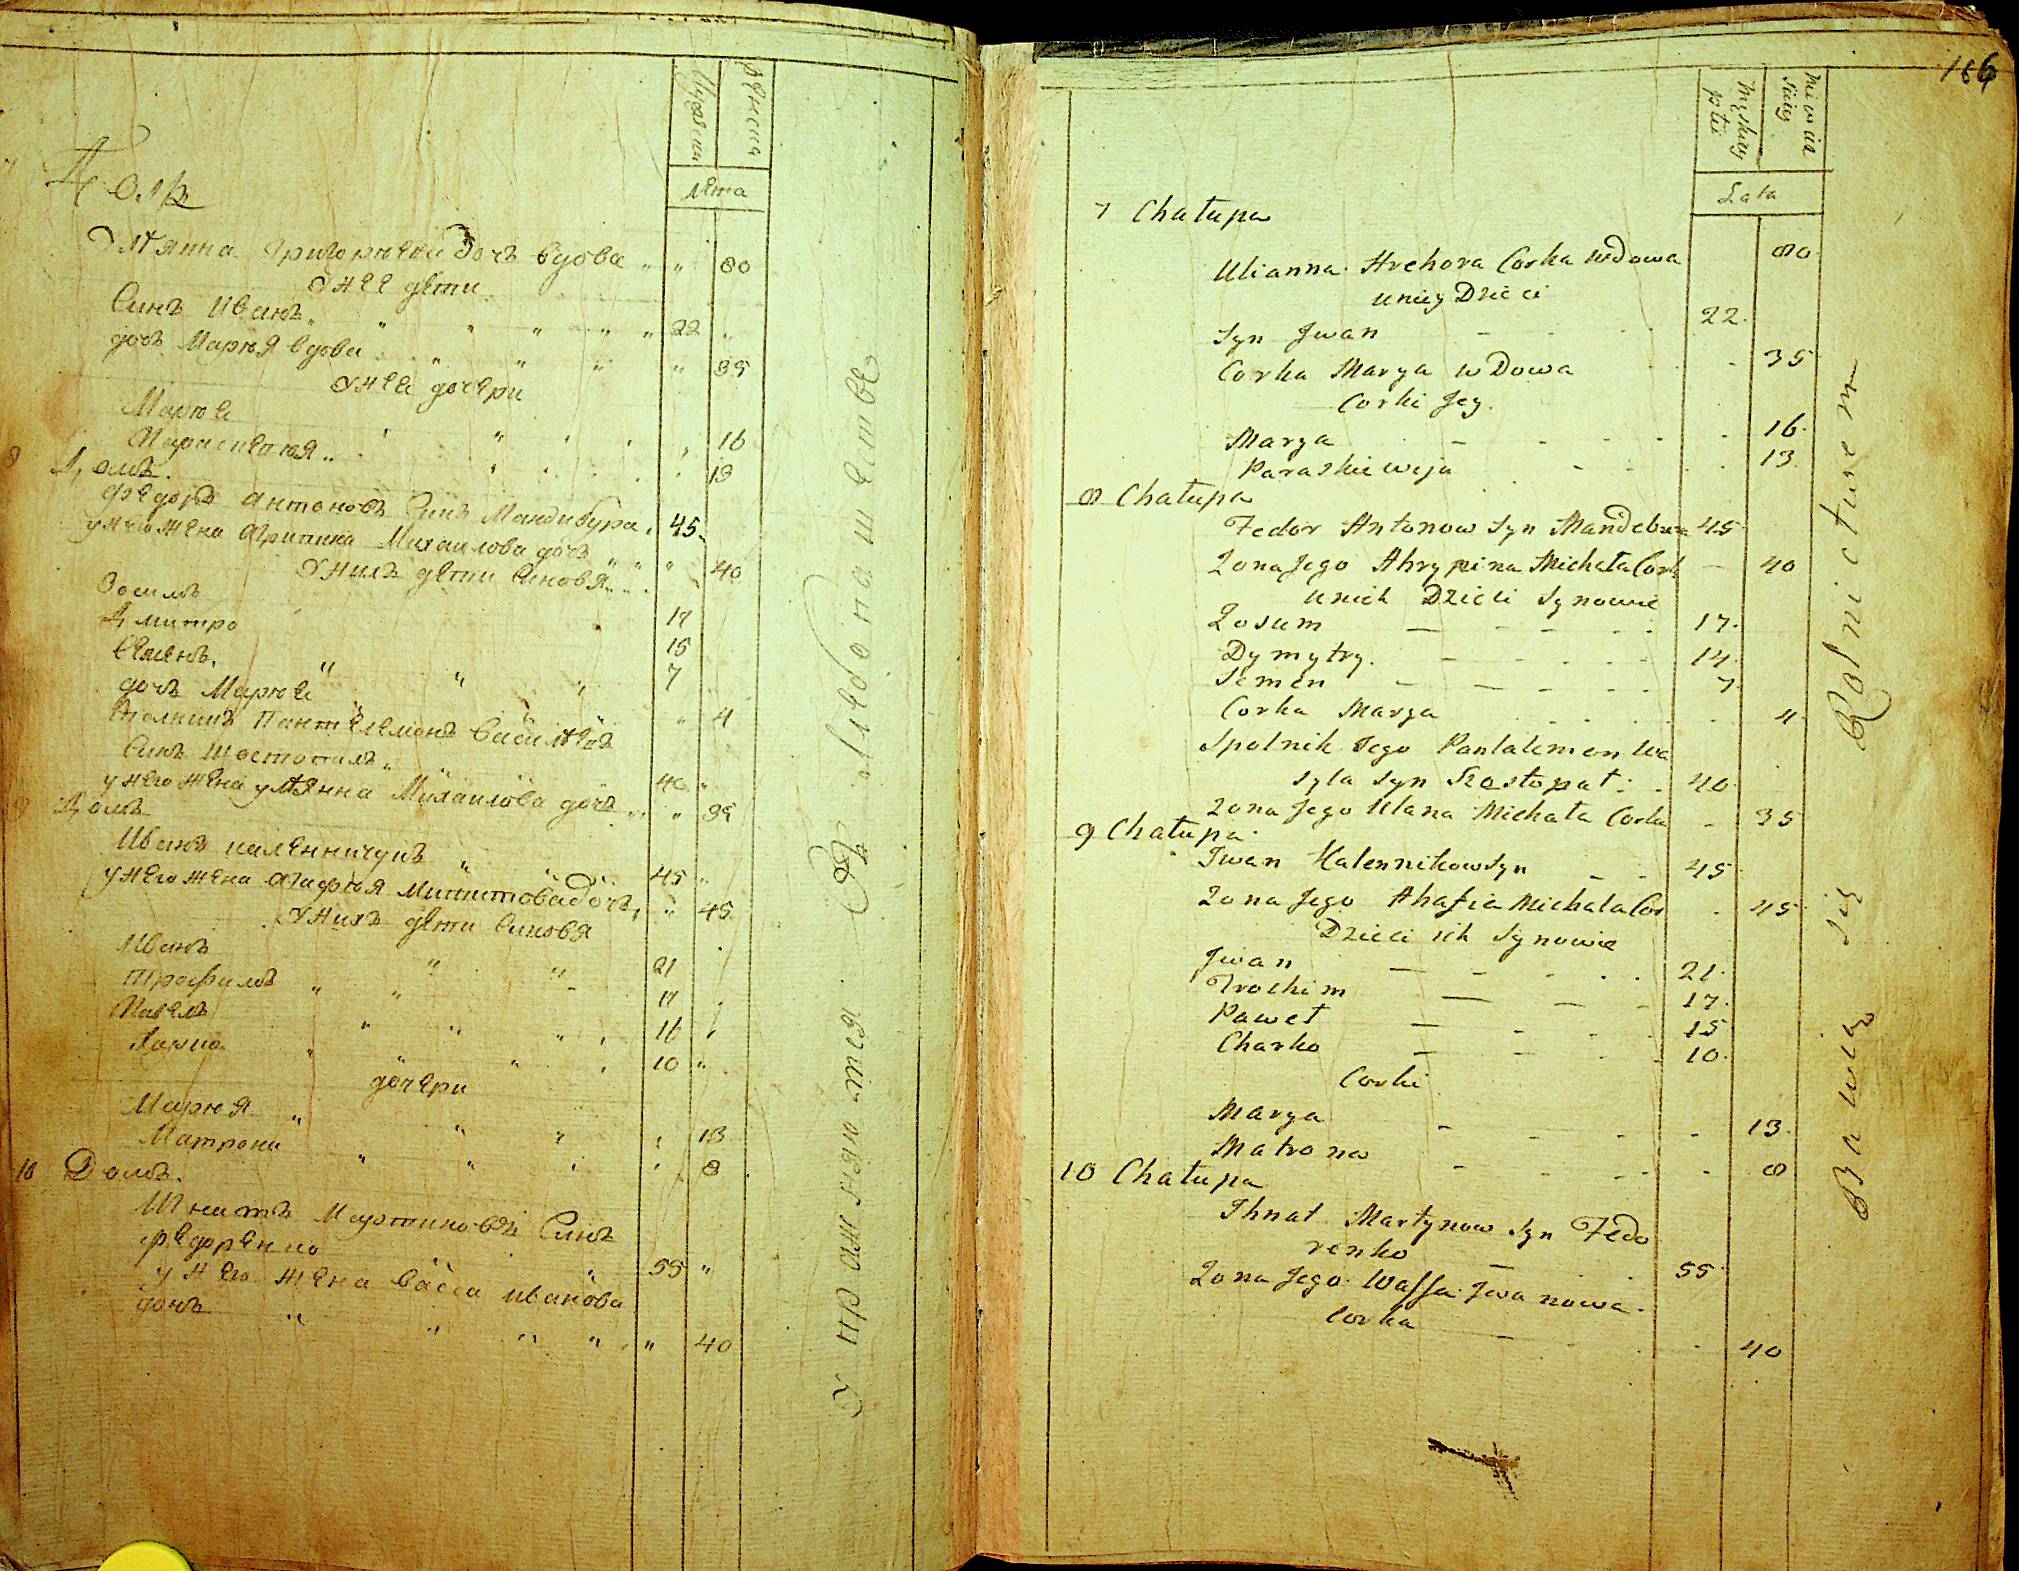 мужеска
женска
Лѣта
Домъ
Улѣянна Григорьева дочъ вдова " " 80
У нее дѣти
Синъ Иванъ " " " " " " 22 "
дочъ Марья вдова " " " " 35
У неи дочери
Марья " " " " 16
Параскевья " " " " 13
8 Домъ.
Федоръ Антоновъ Синъ Мандибура 45
у него жена Агрипина Михаилова дочъ " " 40
У нихъ дѣти Синовя
Зосимъ 17
Дмитро 15
Семенъ " " " 7
дочъ Марья " 4
Пантелемонъ Василѣевъ
Синъ Шостопалъ 40 "
у него жена улѣянна Михаилова дочъ " 35
9 Домъ
Иванъ " 45 "
у него жена Агафья дочъ, " 45
У нихъ дѣти Синовя
Иванъ " " 21
Трофимъ " " 17
Павелъ " " " 16
Харко " " 10 "
дочери
Марья " " " 13
Матрона " " 8
10 Домъ.
Игнатъ Мартиновъ Синъ
федоренко " 55 "
у него жена Васса иванова
дочъ " " " " " 40
Упражняются въ хлебопашествѣ
166
Męskiey
płci
Niewie
ściey
Lata
7 Chałupa
Ulianna Hrehora Corka wdowa 80
u niey Dzieci
Syn Jwan 22.
Corka Marya wDowa 35
Corki Jey.
Marya 16.
Paraskiewija 13.
8 Chałupa
Fedor Antonow Syn Mandebura 45
Zona Jego Ahrypina Michała Cork 40
u nich Dzieci Synowie
Zosum 17.
Dymytry. 14.
Semen 7.
Corka Marya 4.
Spolnik Jego Pantalemon Wa
syla syn Szostopał: 40.
Zona Jego Ulana Michała Corka 35
9 Chałupa.
Iwan Kalennikow Syn 45
Zona Jego Ahafia Michala Cor 45
Dzieci ich Synowie
Jwan 21.
Trochim 17.
Paweł 15
Charko 10.
Corki
Marya 13.
Matrona 8
10 Chałupa
Ihnat Martynow Syn Fedo
renko 55
Zona Jego Wassa Jwanowa.
Corka 40
Bawią się Rolnictwem